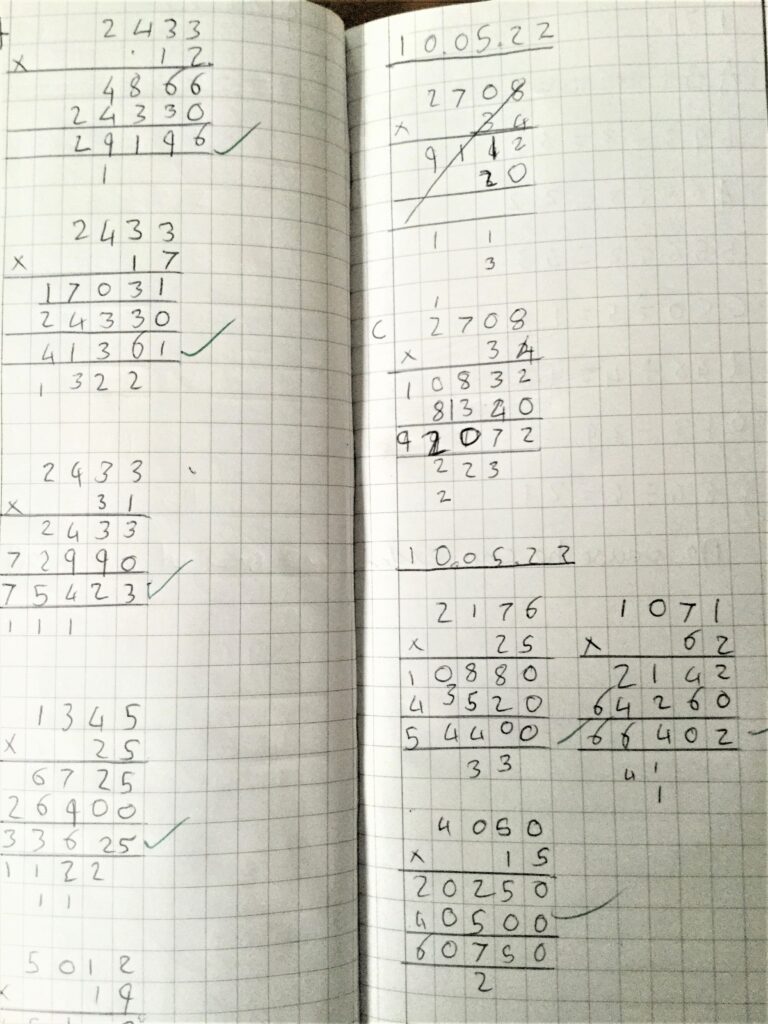 2433
× 12
4866
24330
29196
1
2433
× 17
17031
24330
41361
1 3 2 2
2433
× 31
2433
72990
75423
1 1 1
1345
× 25
6725
26900
33625
1 1 2 2
1 1
5012
× 19
10.05.22
2708
× 34
9112
20
1 1
3
1
C 2708
× 34
10832
81340
92072
2 2 3
2
10.05.22
2176
× 25
10880
43520
54400
3 3
1071
× 62
2142
64260
66402
4 1
1
4050
× 15
20250
40500
60750
2